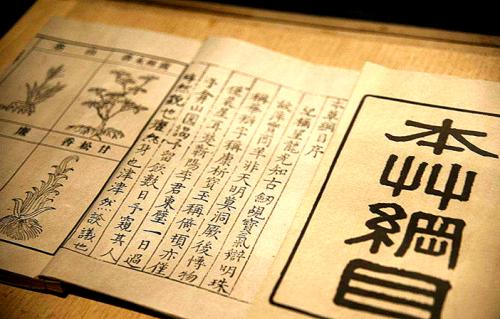 本艸綱目
本草綱目序
紀稱望龍光知古劒覘寶氣辯明珠
故萍實商羊非天明莫洞厥後博物
稱華辯字稱康析寶玉稱倚頓亦僅
僅晨星耳楚蘄陽李君東璧一日過
予弇山園謁予留飲數日予窺其人
睟然貌也癯然身也津津然譚議也
甘松香